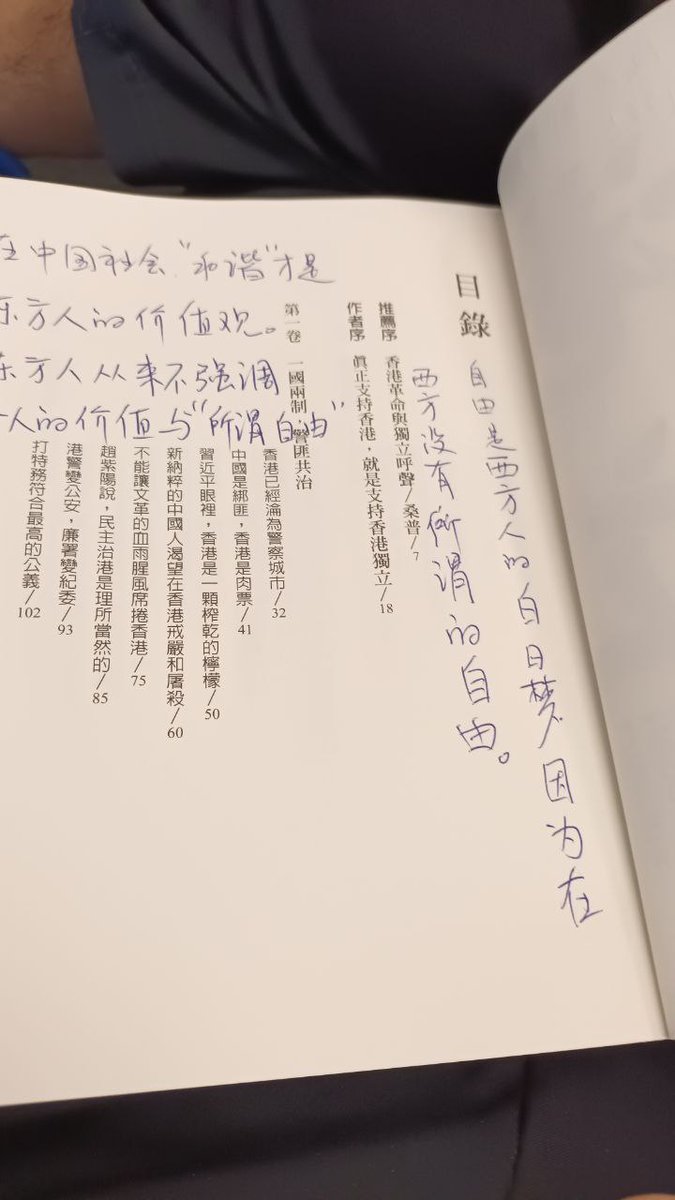 目錄
推薦序 香港革命與獨立呼聲/桑普/7
作者序 真正支持香港，就是支持香港獨立/18
第一卷 一國兩制 警匪共治
香港已經淪為警察城市/32
中國是綁匪，香港是肉票/41
習近平眼裡，香港是一顆榨乾的檸檬/50
新納粹的中國人渴望在香港戒嚴和屠殺/60
不能讓文革的血雨腥風席捲香港/75
趙紫陽說，民主治港是理所當然的/85
港警變公安，廉署變紀委/93
打特務符合最高的公義/102
自由是西方人的白日梦因为在
西方没有所谓的自由。
在中国社会"和谐"才是
东方人的价值观。
东方人从来不强调
人的价值与"所谓自由"